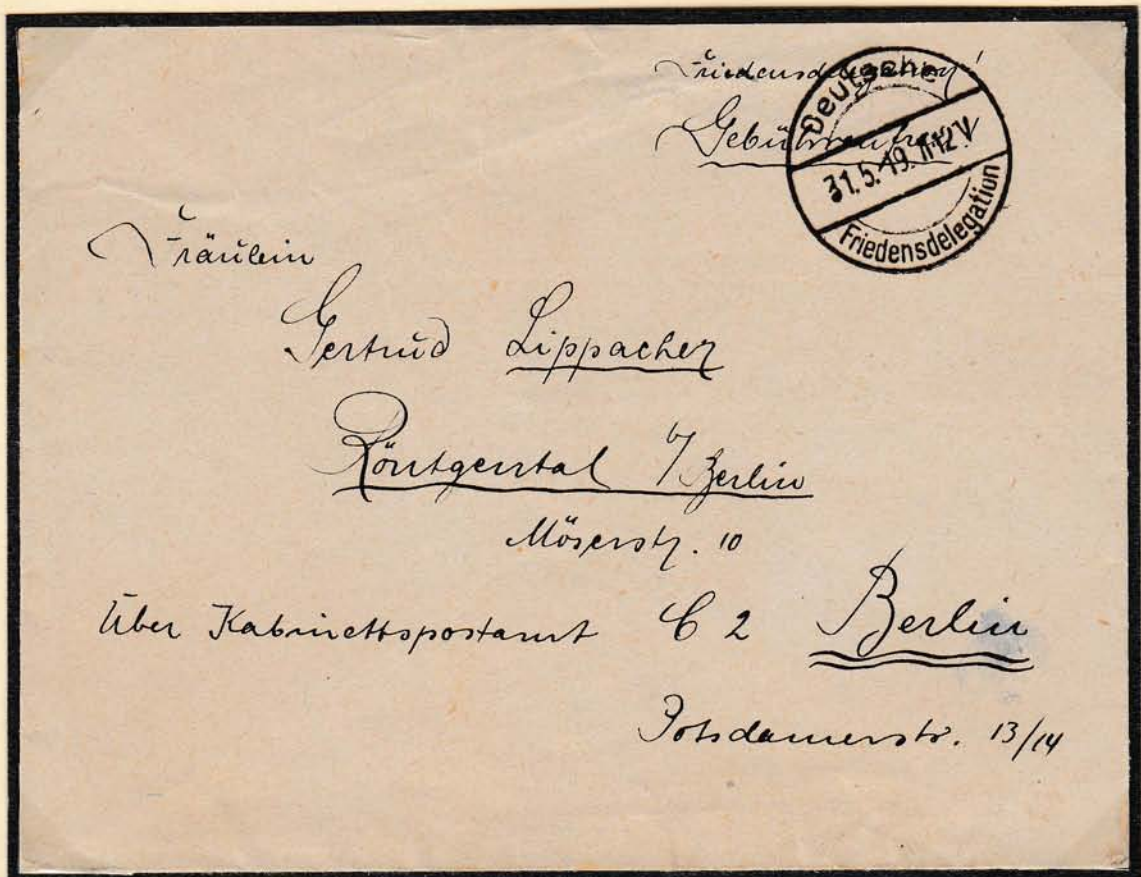 Friedensdelegation!
Gebührenfrei
Deutsche
31.5.19.11-12V
Friedensdelegation
Fräulein
Gertrud Lippacher
Röntgental b/Berlin
Möserstr. 10
Über Kabinettspostamt C 2 Berlin
Potsdamerstr. 13/14